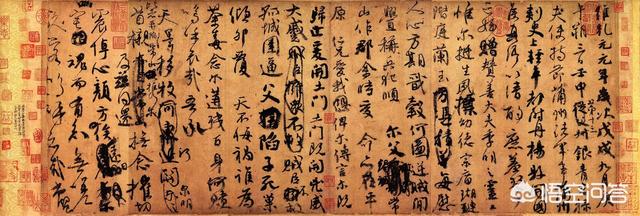 維乾元元年歲次戊戌九月庚
午朔三日壬申第十三叔銀青光祿
夫使持節蒲州諸軍事蒲州
刺史上輕車都尉丹楊縣開國
侯真卿以清酌庶羞祭于
亡姪贈贊善大夫季明之靈曰
惟爾挺生夙標幼德宗廟瑚璉
階庭蘭玉每慰
人心方期戩穀何圖逆賊閒
釁稱兵犯順爾父竭誠常
山作郡余時受命亦在平
原仁兄愛我俾爾傳言爾既
歸止爰開土門土門既開凶威
大蹙賊臣不救
孤城圍逼父陷子死巢
傾卵覆天不悔禍誰為
荼毒念爾遘殘百身何贖
嗚乎哀哉吾承
天澤移牧河關泉明
比者再陷常山攜爾
首櫬及茲同還撫念摧切
震悼心顏方俟遠日
爾幽宅魂而有知無嗟
久客嗚呼哀哉尚饗
悟空问答